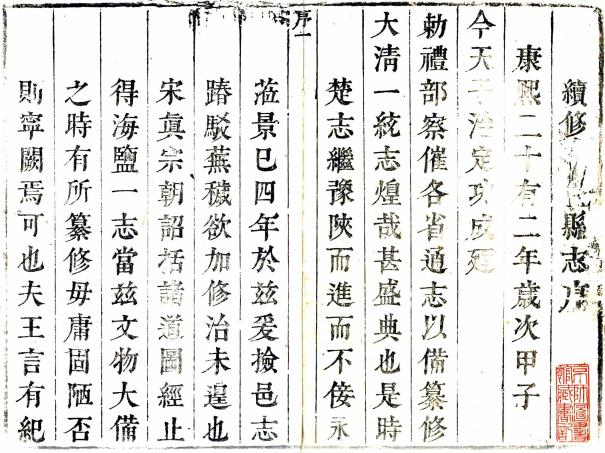 續修 縣志序
康熙二十有二年歲次甲子
今天子治定功成廼
勅禮部察催各省通志以備纂修
大清一統志煌哉甚盛典也是時
楚志繼豫陝而進而不佞永
序一
蒞景已四年於茲爰撿邑志
踳駁蕪穢欲加修治未遑也
宋真宗朝詔括諸道圖經止
得海鹽一志當茲文物大備
之時有所纂修毋庸固陋否
則寧闕焉可也夫王言有紀
京師圖書館藏書印